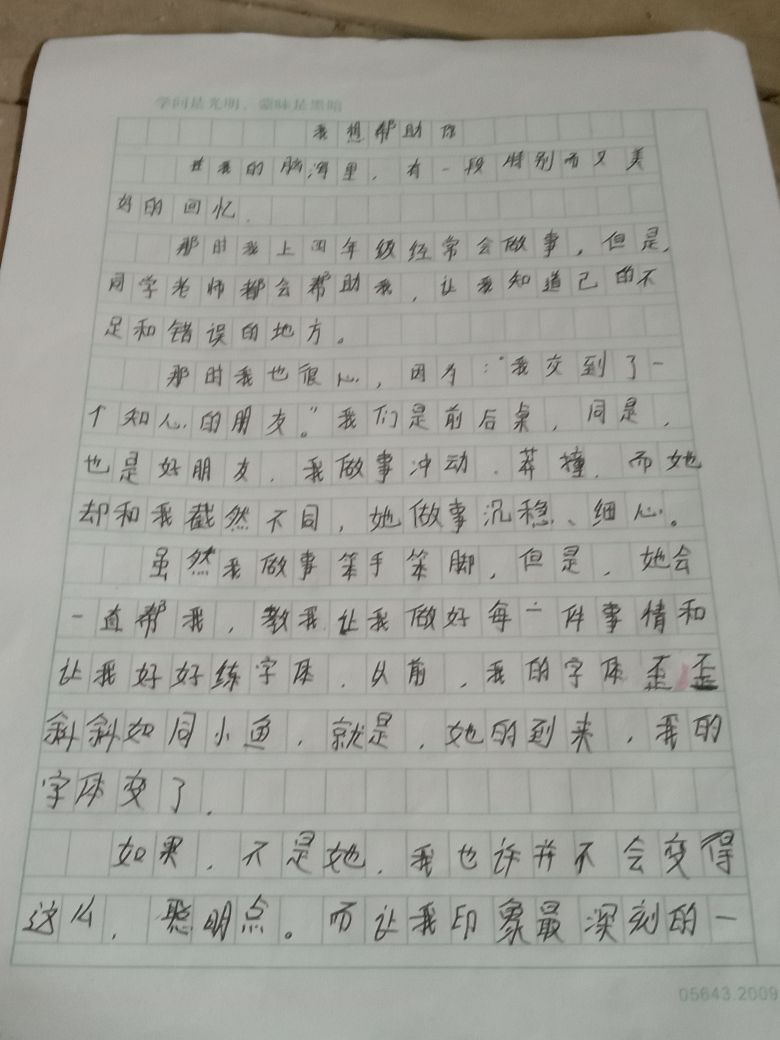 学问是光明，蒙昧是黑暗
我想帮助你
在我的脑海里，有一段特别而又美
好的回忆.
那时我上四年级经常会做事，但是，
同学老师都会帮助我，让我知道己的不
足和错误的地方。
那时我也很心，因为："我交到了一
个知心的朋友。"我们是前后桌，同是，
也是好朋友.我做事冲动.莽撞.而她
却和我截然不同，她做事沉稳、细心。
虽然我做事笨手笨脚，但是，她会
一直帮我，教我让我做好每一件事情和
让我好好练字体.以前，我的字体歪歪
斜斜如同小鱼.就是.她的到来，我的
字体变了.
如果.不是她.我也许并不会变得
这么.聪明点。而让我印象最深刻的一
05643.2009